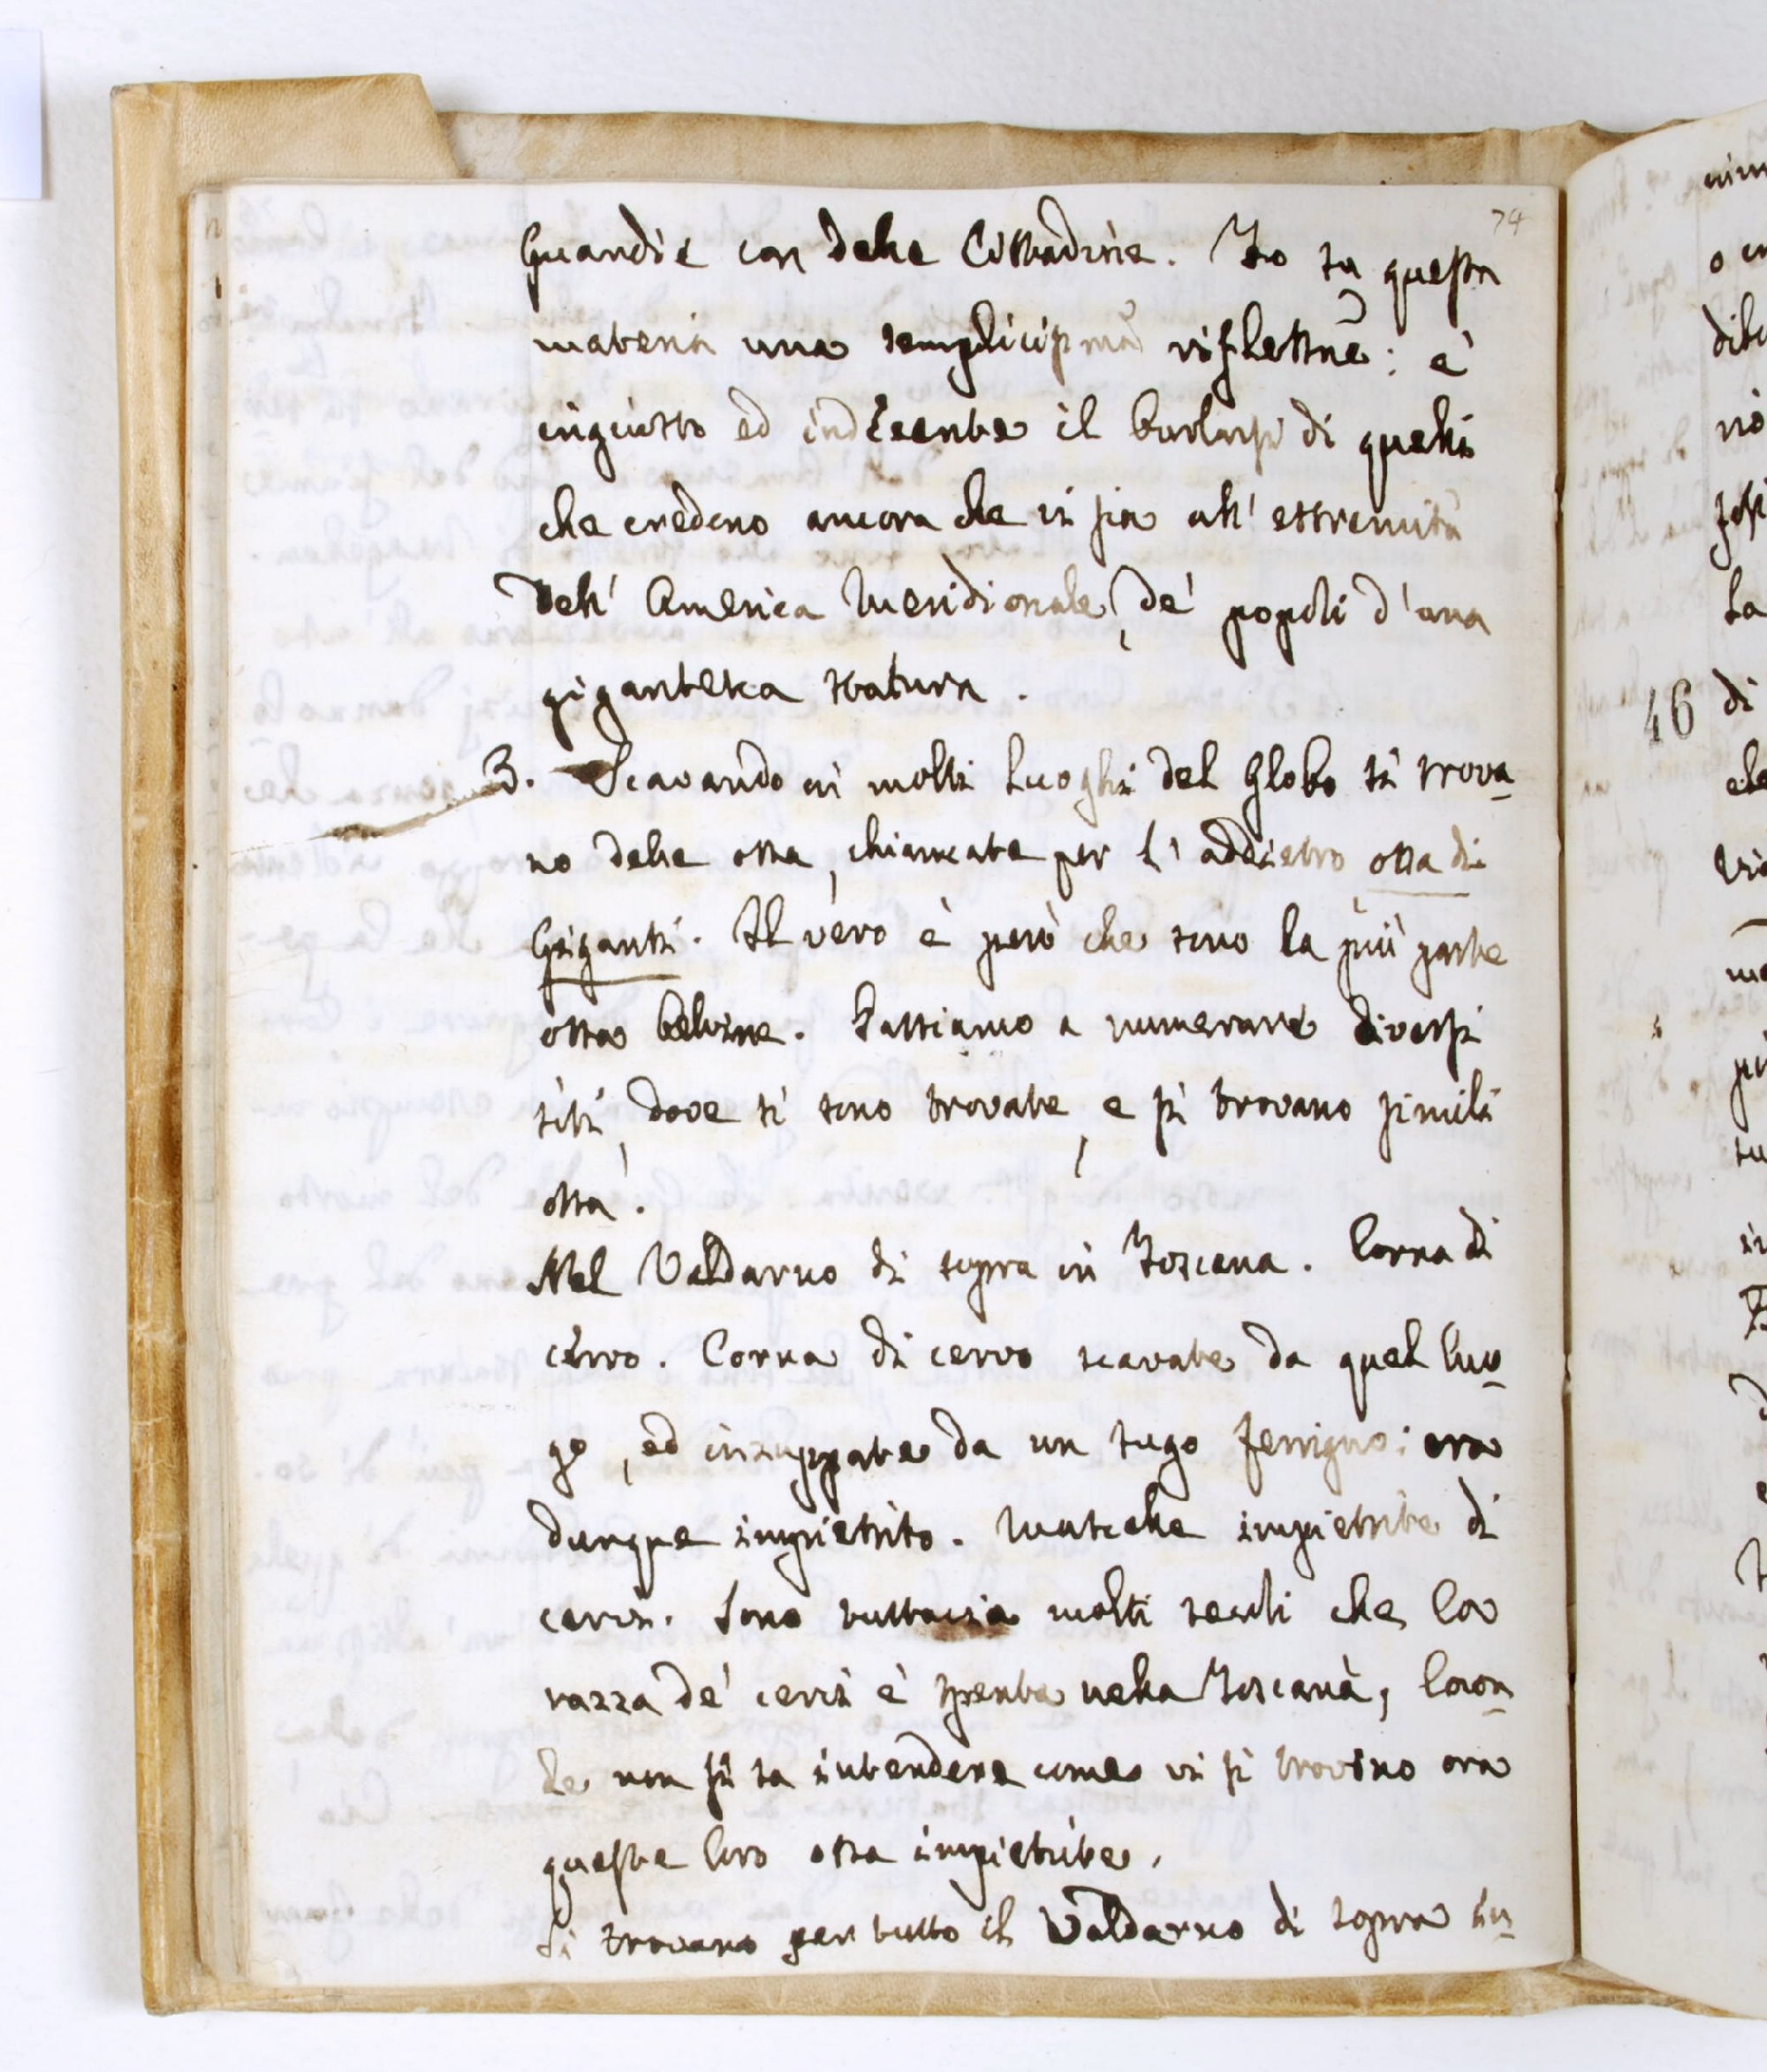 74
Guandie con delle Cittadine. Io su questa
materia una semplicissima riflessne: è
ingiusto ed indecente il burlarsi di quelli
che credono ancora che vi sia all' estremità
dell' America Meridionale, de' popoli d'una
gigantesca statura.
3. Scavando in molti luoghi del Globo si trova-
no delle ossa, chiamate per l'addietro ossa di
Giganti. Il vero è però che sono la più parte
ossa belvine. Passiamo a numerare diversi
siti, dove si sono trovate, e si trovano simili
ossa.
Nel Valdarno di sopra in Toscana. Corna di
cervo. Corna di cervo scavate da quel luo-
go, ed inzuppate da un sugo ferrigno: era
dunque impietrito. Mascelle impietrite di
cervi. Sono tuttavia molti secoli che la
razza de' cervi è spenta nella Toscana, laon-
de non si sa intendere come vi si trovino ora
queste loro ossa impietrite.
Si trovano per tutto il Valdarno di sopra in-
46